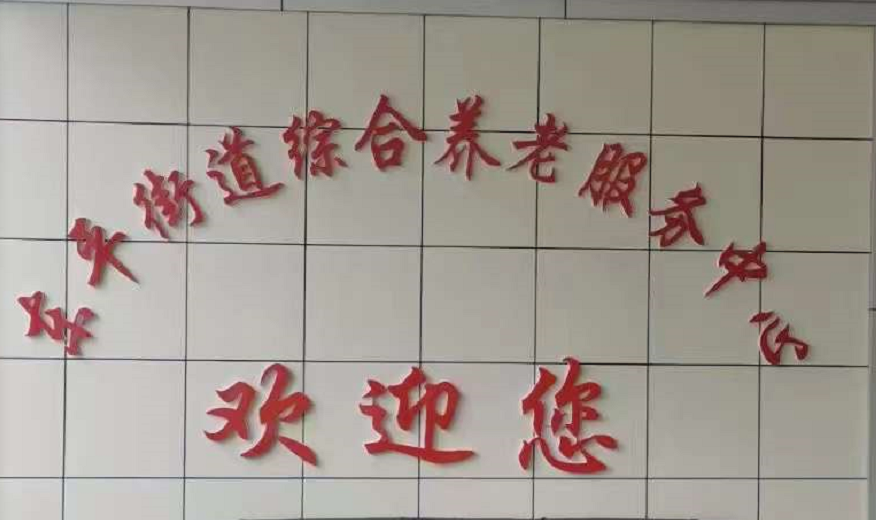 头街道综合养老服务中心
欢迎您